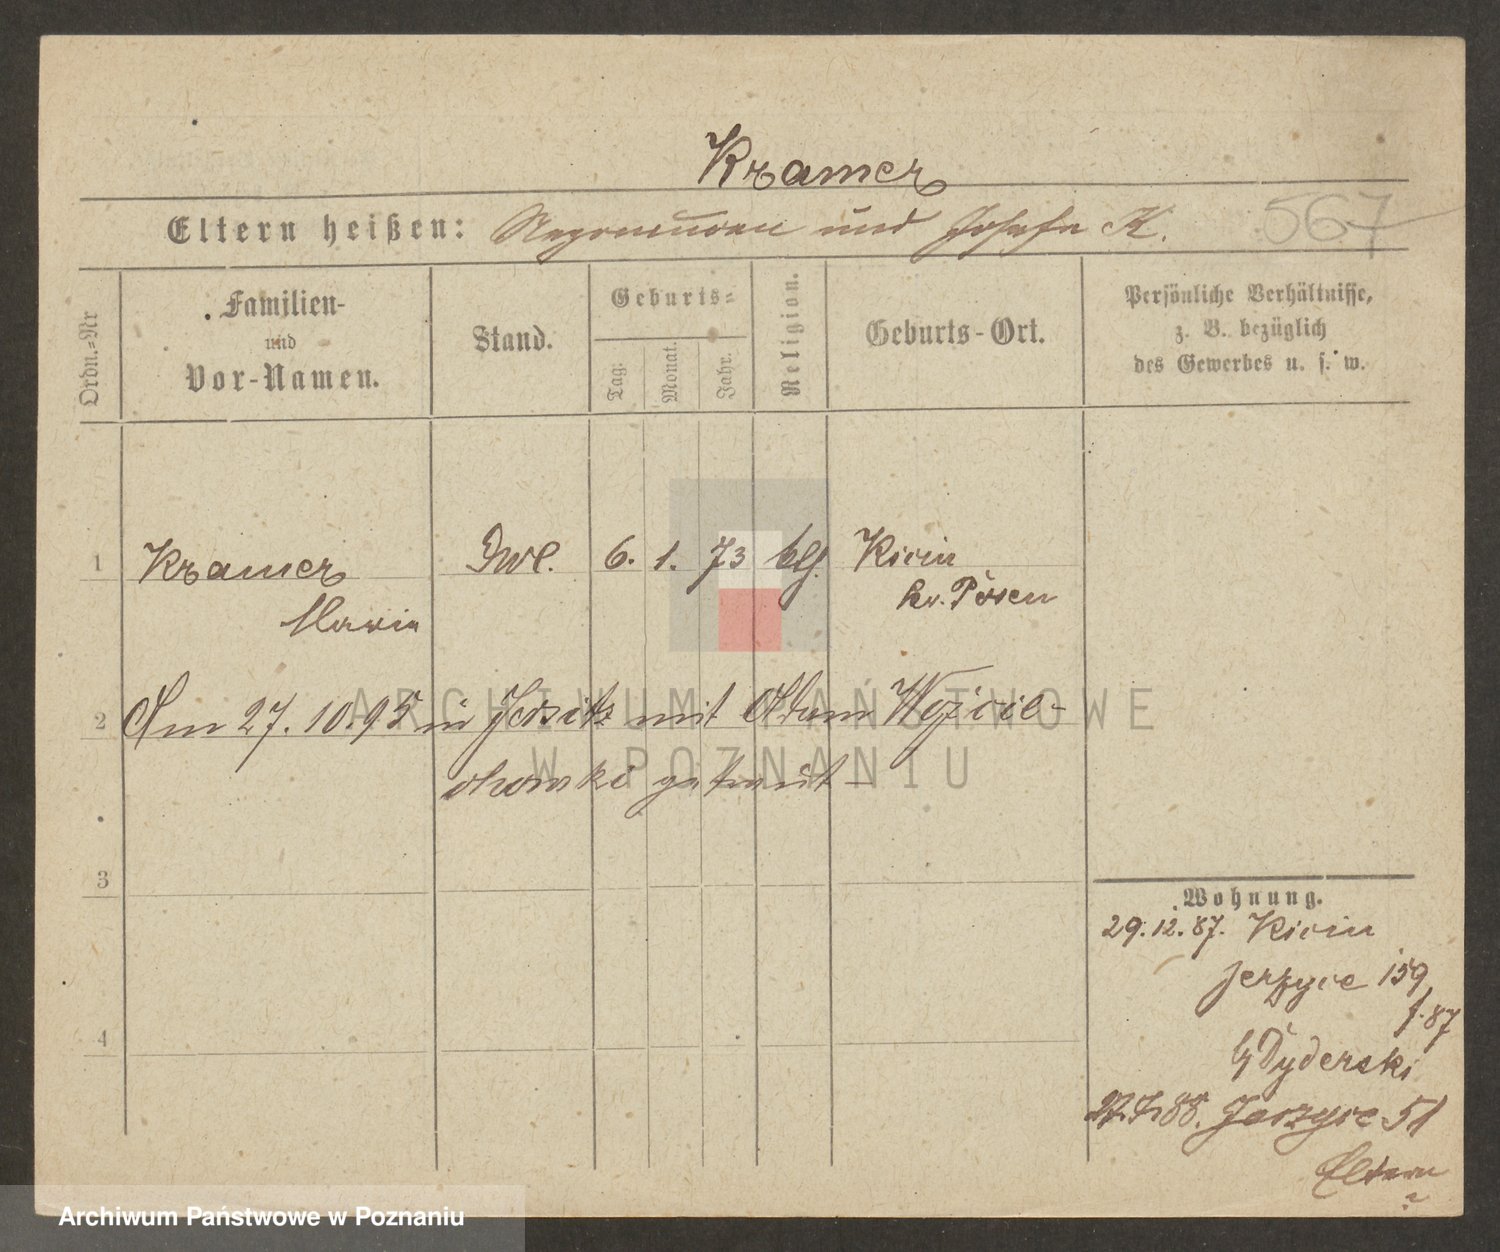 Kramer
Eltern heißen: und Josefa K. 567
Ordn.=Nr
Familien-
und
Vor-Namen.
Stand.
Geburts=
Tag.
Monat.
Jahr.
Religion.
Geburts-Ort.
Persönliche Verhältnisse,
z. B. bezüglich
des Gewerbes u. s. w.
1 Kramer 6. 1. 73 Kicin
Maria Kr. Posen
2 Am 27. 10. 95 in Jersitz mit Adam Wojcie-
chowski getraut
3
4
Wohnung.
29.12.87. Kicin
Jerzyce 159
f. 87
Dyderski
88. Jerzyce 51
Eltern
ARCHIWUM PAŃSTWOWE
W POZNANIU
Archiwum Państwowe w Poznaniu